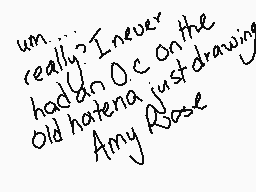 um....
really? I never
had an O.C on the
old hatena just drawing
Amy Rose